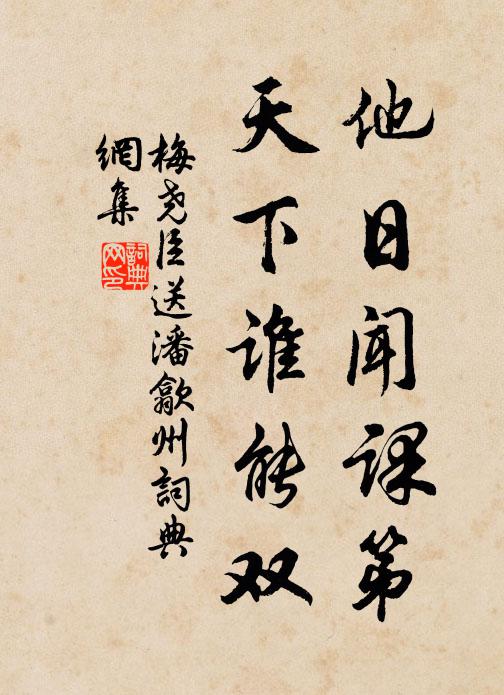 他日闻课第
天下谁能双
梅尧臣送潘歙州詞典
網集
詞典
网印